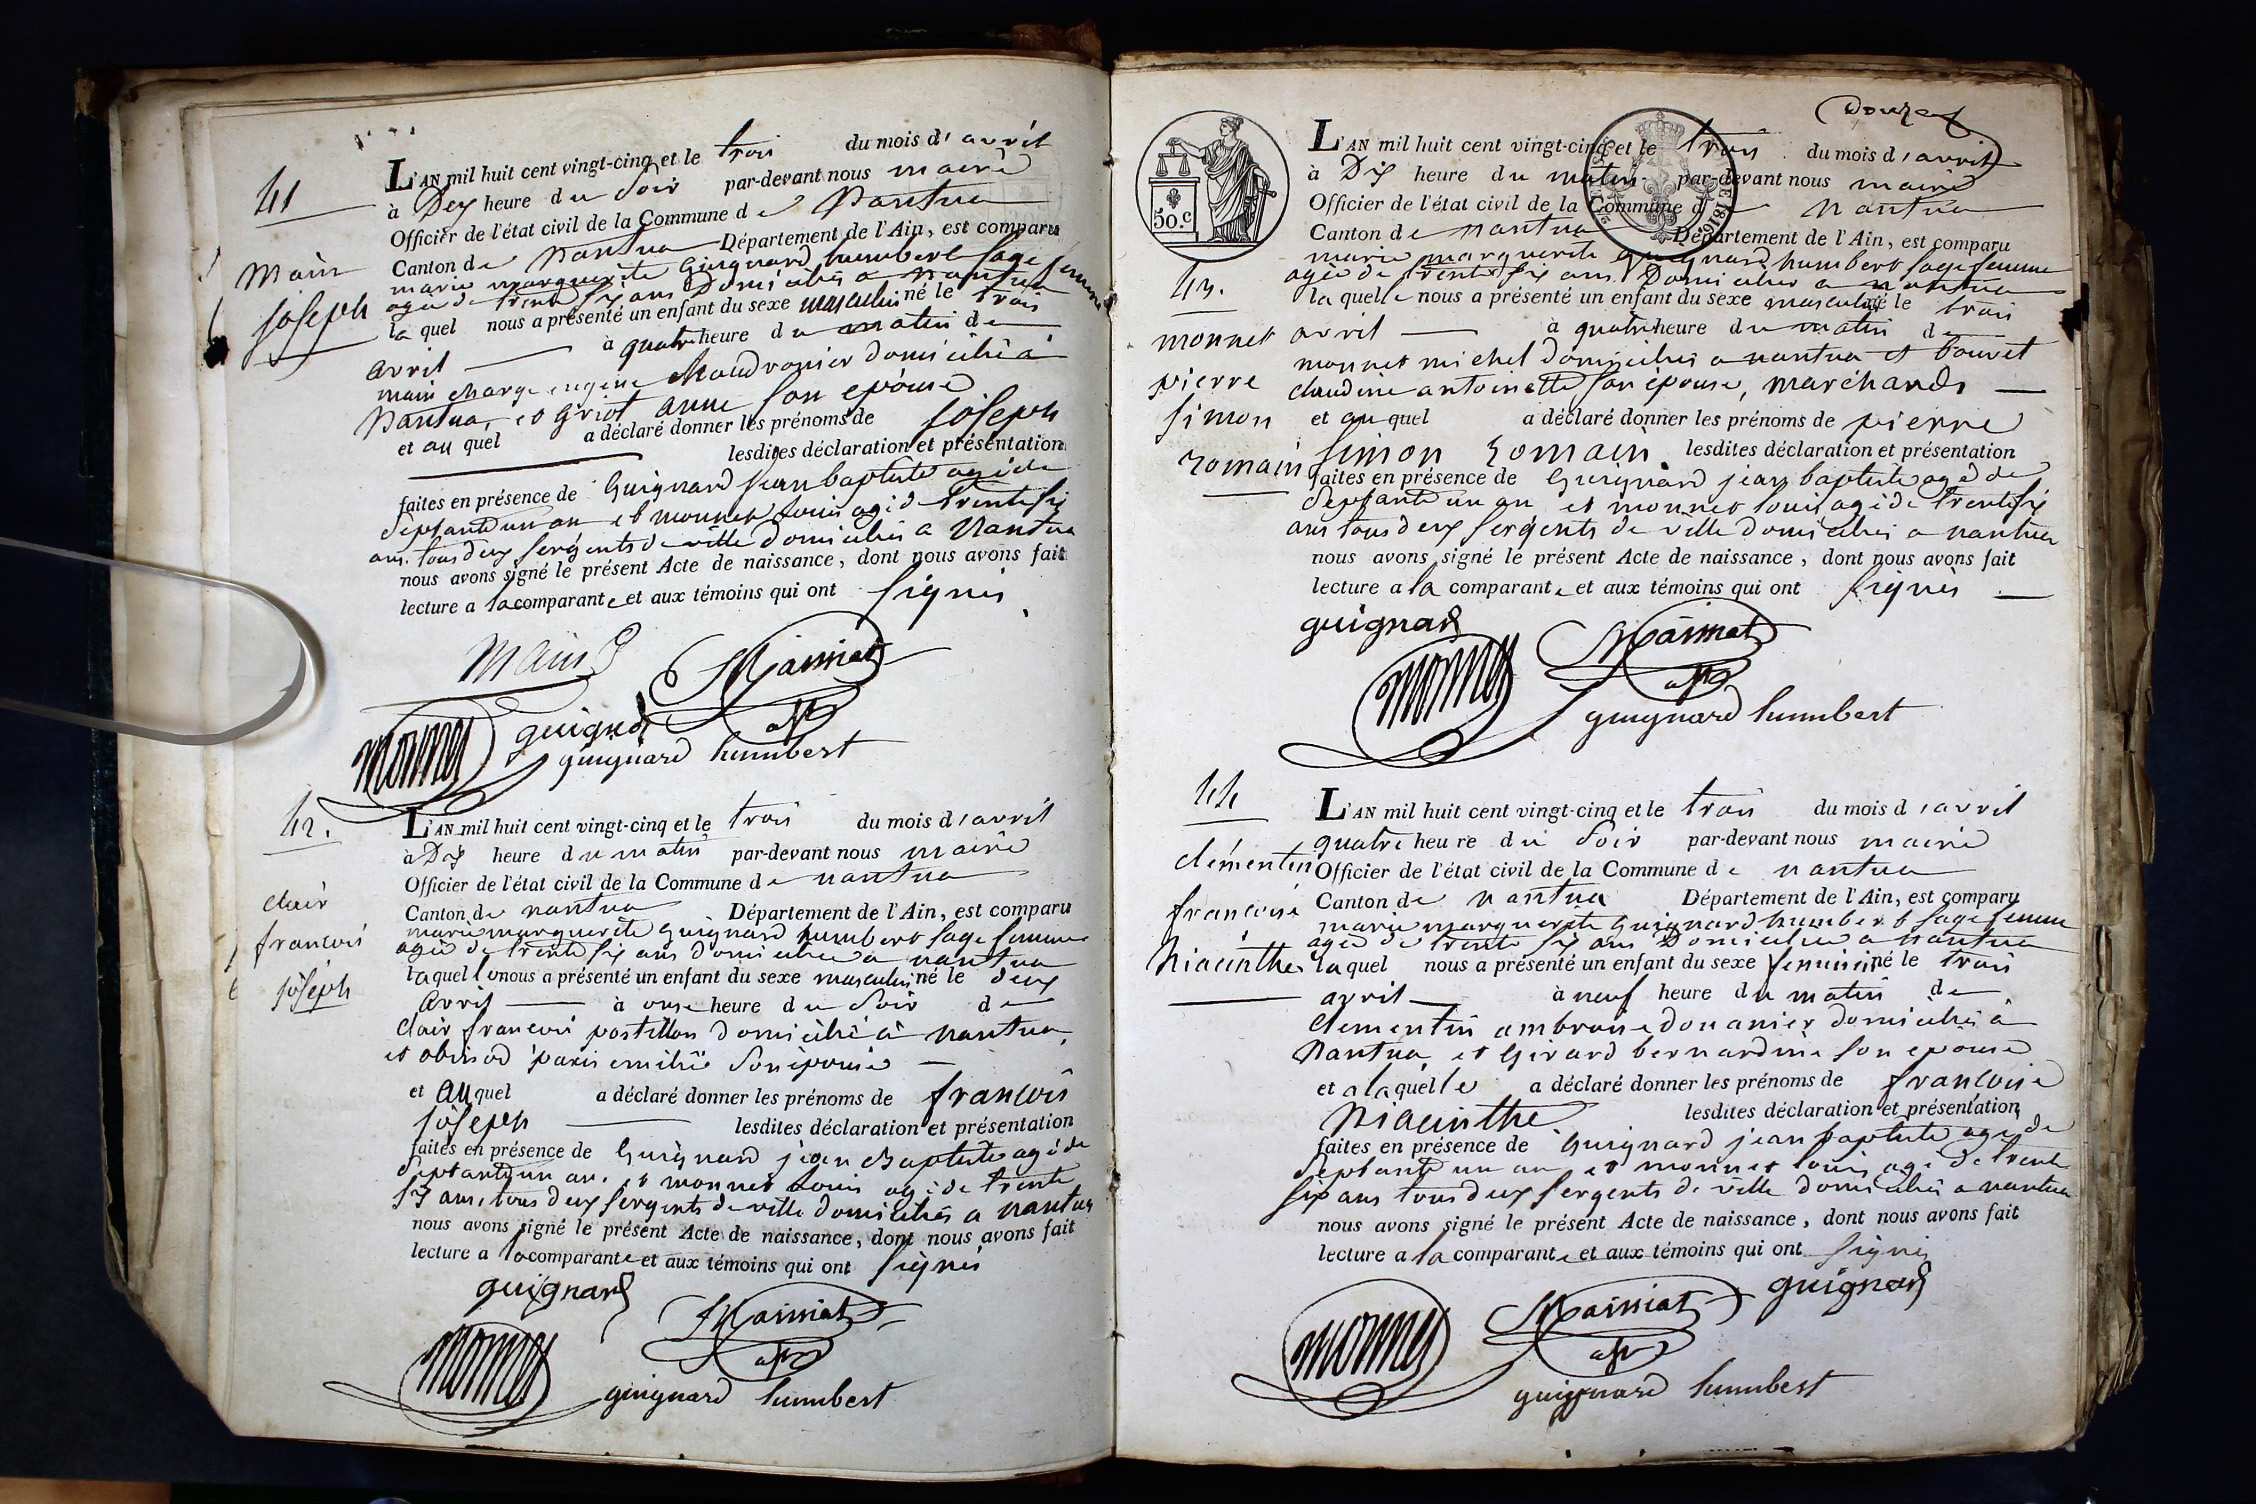 41
Main
joseph
L'AN mil huit cent vingt-cinq et le trois du mois d'avril
à Dex heure du Soir par-devant nous maire
Officier de l'état civil de la Commune de Nantua
Canton de Nantua Département de l'Ain, est comparu
marie marguerite Guignard humbert sage femme
agée de trente six ans Domiciliée a nantua
la quel nous a présenté un enfant du sexe masculin né le trois
avril à quatre heure du matin de
main charge eugene Chaudronier domicilié à
Nantua, et Griot anne son epouse
et au quel a déclaré donner les prénoms de joseph
lesdites déclaration et présentation
faites en présence de Guignard jean baptiste agé de
septante un an et monnet louis agé de trente six
ans tous deux sergents de ville domiciliés a Nantua
nous avons signé le présent Acte de naissance, dont nous avons fait
lecture a la comparante et aux témoins qui ont signés
Main
guignard
monnet
guignard humbert
42.
clair
francois
joseph
L'AN mil huit cent vingt-cinq et le trois du mois d'avril
à Dix heure du matin par-devant nous maire
Officier de l'état civil de la Commune de nantua
Canton de nantua Département de l'Ain, est comparu
marie marguerite guignard humbert sage femme
agée de trente six ans domiciliée a nantua
laquelle nous a présenté un enfant du sexe masculin né le deux
avril à onse heure du soir de
clair francois postillon domicilié à nantua,
et paris emilie son épouse
et au quel a déclaré donner les prénoms de francois
joseph lesdites déclaration et présentation
faites en présence de Guignard jean Baptiste agé de
septante un an, et monnet Louis agé de trente
six ans, tous deux sergents de ville domiciliés a nantua
nous avons signé le présent Acte de naissance, dont nous avons fait
lecture a la comparante et aux témoins qui ont signés
guignard
monnet
guignard humbert
Douze
50.c
43.
monnet
pierre
simon
romain
L'AN mil huit cent vingt-cinq et le trois du mois d'avril
à Dix heure du matin par-devant nous maire
Officier de l'état civil de la Commune de nantua
Canton de nantua Département de l'Ain, est comparu
marie marguerite guignard humbert sage femme
agée de trente six ans Domiciliée a nantua
la quelle nous a présenté un enfant du sexe masculin né le trois
avril à quatre heure du matin de
monnet michel domicilié a nantua et bouvet
claudine antoinette son épouse, marchands
et au quel a déclaré donner les prénoms de pierre
simon romain lesdites déclaration et présentation
faites en présence de Guignard jean baptiste agé de
septante un an et monnet louis agé de trente six
ans tous deux sergents de ville domiciliés a nantua
nous avons signé le présent Acte de naissance, dont nous avons fait
lecture a la comparante et aux témoins qui ont signés
guignard
monnet
guignard humbert
44
clémentin
francoise
hiacinthe
L'AN mil huit cent vingt-cinq et le trois du mois d'avril
quatre heure du Soir par-devant nous maire
Officier de l'état civil de la Commune de nantua
Canton de nantua Département de l'Ain, est comparu
marie marguerite Guignard humbert sage femme
agée de trente six ans Domiciliée a nantua
laquel nous a présenté un enfant du sexe feminin né le trois
avril à neuf heure du matin de
clementin ambroise douanier domicilié à
Nantua et Girard bernardine son epouse
et a laquelle a déclaré donner les prénoms de francoise
hiacinthe lesdites déclaration et présentation
faites en présence de Guignard jean baptiste agé de
septante un an et monnet louis agé de trente
six ans tous deux sergents de ville domiciliés a nantua
nous avons signé le présent Acte de naissance, dont nous avons fait
lecture a la comparante et aux témoins qui ont signés
guignard
monnet
guignard humbert